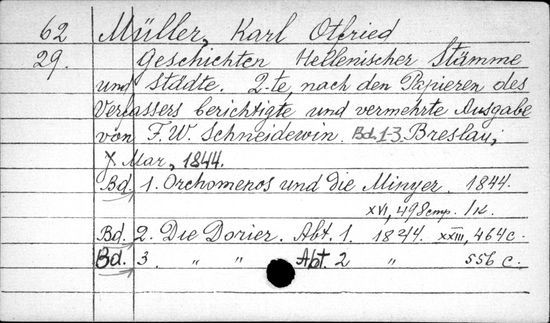 62 Müller, Karl Otfried
29. Geschichten Hellenischer Stämme
und Städte. 2-te, nach den Papieren des
Verfassers berichtigte und vermehrte Ausgabe
von F. W. Schneidewin. Bd. 1-3. Breslau,
Mar, 1844.
Bd. 1. Orchomenos und die Minyer. 1844.
XVI, 498 стр. 1 к.
Bd. 2. Die Dorier. Abt. 1. 1844. XXIII, 464 с.
Bd. 3. " " Abt. 2 " 556 с.